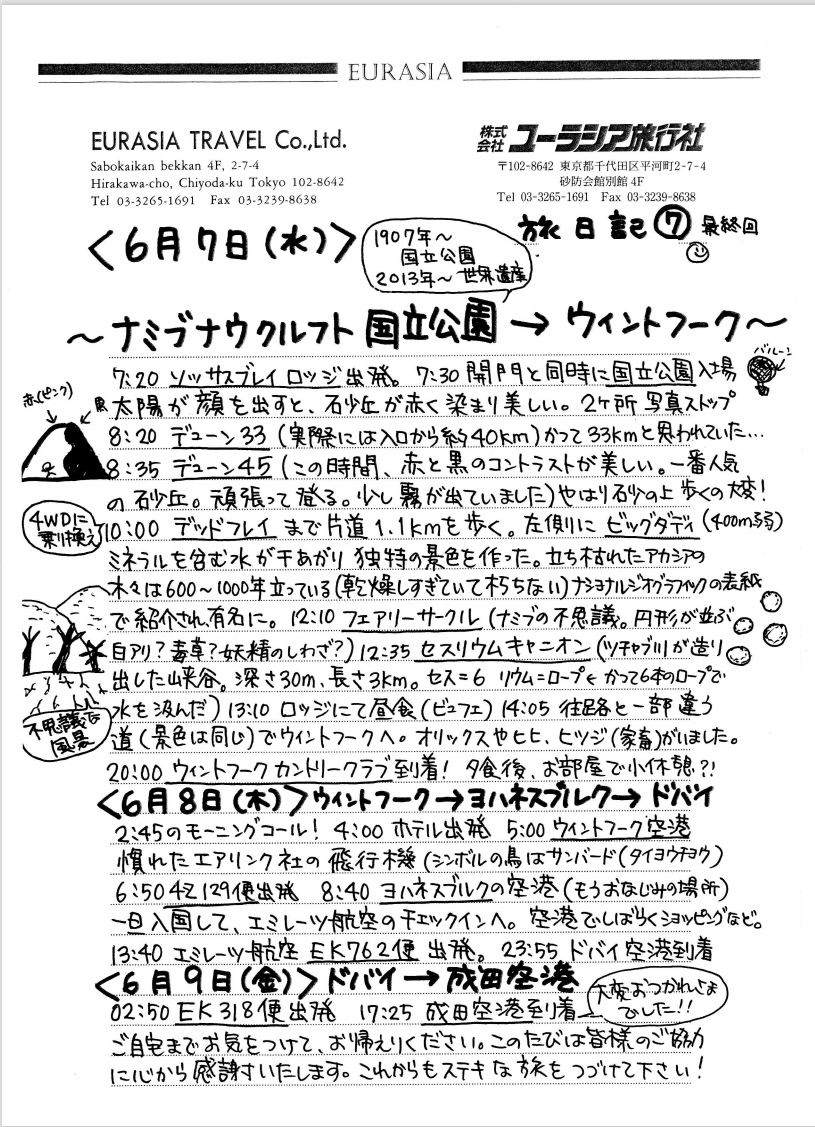 EURASIA
EURASIA TRAVEL Co.,Ltd.
Sabokaikan bekkan 4F, 2-7-4
Hirakawa-cho, Chiyoda-ku Tokyo 102-8642
Tel 03-3265-1691 Fax 03-3239-8638
株式会社 ユーラシア旅行社
〒102-8642 東京都千代田区平河町2-7-4
砂防会館別館 4F
Tel 03-3265-1691 Fax 03-3239-8638
旅日記⑦ 最終回
<6月7日(水)>
1907年~
国立公園
2013年~世界遺産
~ナミブナウクルフト国立公園→ウィントフーク~
バルーン
7:20 ソッサスブレイロッジ出発。7:30 開門と同時に国立公園入場
赤(ピンク)
黒
太陽が顔を出すと、砂丘が赤く染まり美しい。2ヶ所写真ストップ
8:20 デューン33 (実際には入口から約40km)かつて33kmと思われていた…
8:35 デューン45 (この時間、赤と黒のコントラストが美しい。一番人気
の砂丘。頑張って登る。少し霧が出ていました)やはり砂の上歩くの大変!
4WDに
乗り換え
10:00 デッドフレイまで片道1.1kmを歩く。左側にビッグダディ(400m弱)
ミネラルを含む水が干あがり独特の景色を作った。立ち枯れたアカシアの
木々は600~1000年立っている(乾燥しすぎていて朽ちない)ナショナルジオグラフィックの表紙
で紹介され、有名に。12:10 フェアリーサークル(ナミブの不思議。円形が並ぶ
白アリ?毒草?妖精のしわざ?)12:35 セスリウムキャニオン(ツチャブ川が造り
出した峡谷。深さ30m、長さ3km。セス=6 リウム=ロープ← かつて6本のロープで
不思議な
風景
水を汲んだ)13:10 ロッジにて昼食(ビュフェ)14:05 往路と一部違う
道(景色は同じ)でウィントフークへ。オリックスやヒヒ、ヒツジ(家畜)がいました。
20:00 ウィントフークカントリークラブ到着! 夕食後、お部屋で小休憩?!
<6月8日(木)>ウィントフーク→ヨハネスブルク→ドバイ
2:45のモーニングコール! 4:00 ホテル出発 5:00 ウィントフーク空港
慣れたエアリンク社の飛行機(シンボルの鳥はサンバード(タイヨウチョウ)
6:50 4Z129便出発 8:40 ヨハネスブルクの空港(もうおなじみの場所)
一旦入国して、エミレーツ航空のチェックインへ。空港でしばらくショッピングなど。
13:40 エミレーツ航空 EK762便 出発。23:55 ドバイ空港到着
<6月9日(金)>ドバイ→成田空港
大変おつかれさま
でした!!
02:50 EK318便出発 17:25 成田空港到着
ご自宅までお気をつけて、お帰えりください。このたびは皆様のご協力
に心から感謝いたします。これからもステキな旅をつづけて下さい!